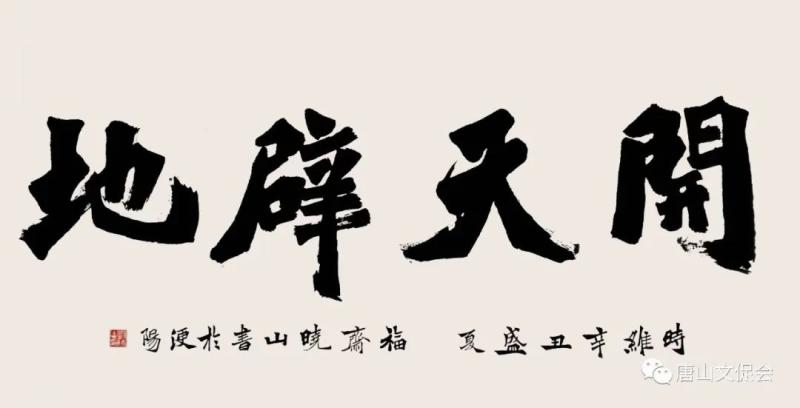 開天辟地
時維辛丑盛夏 福齋曉山書於浭陽
唐山文促会